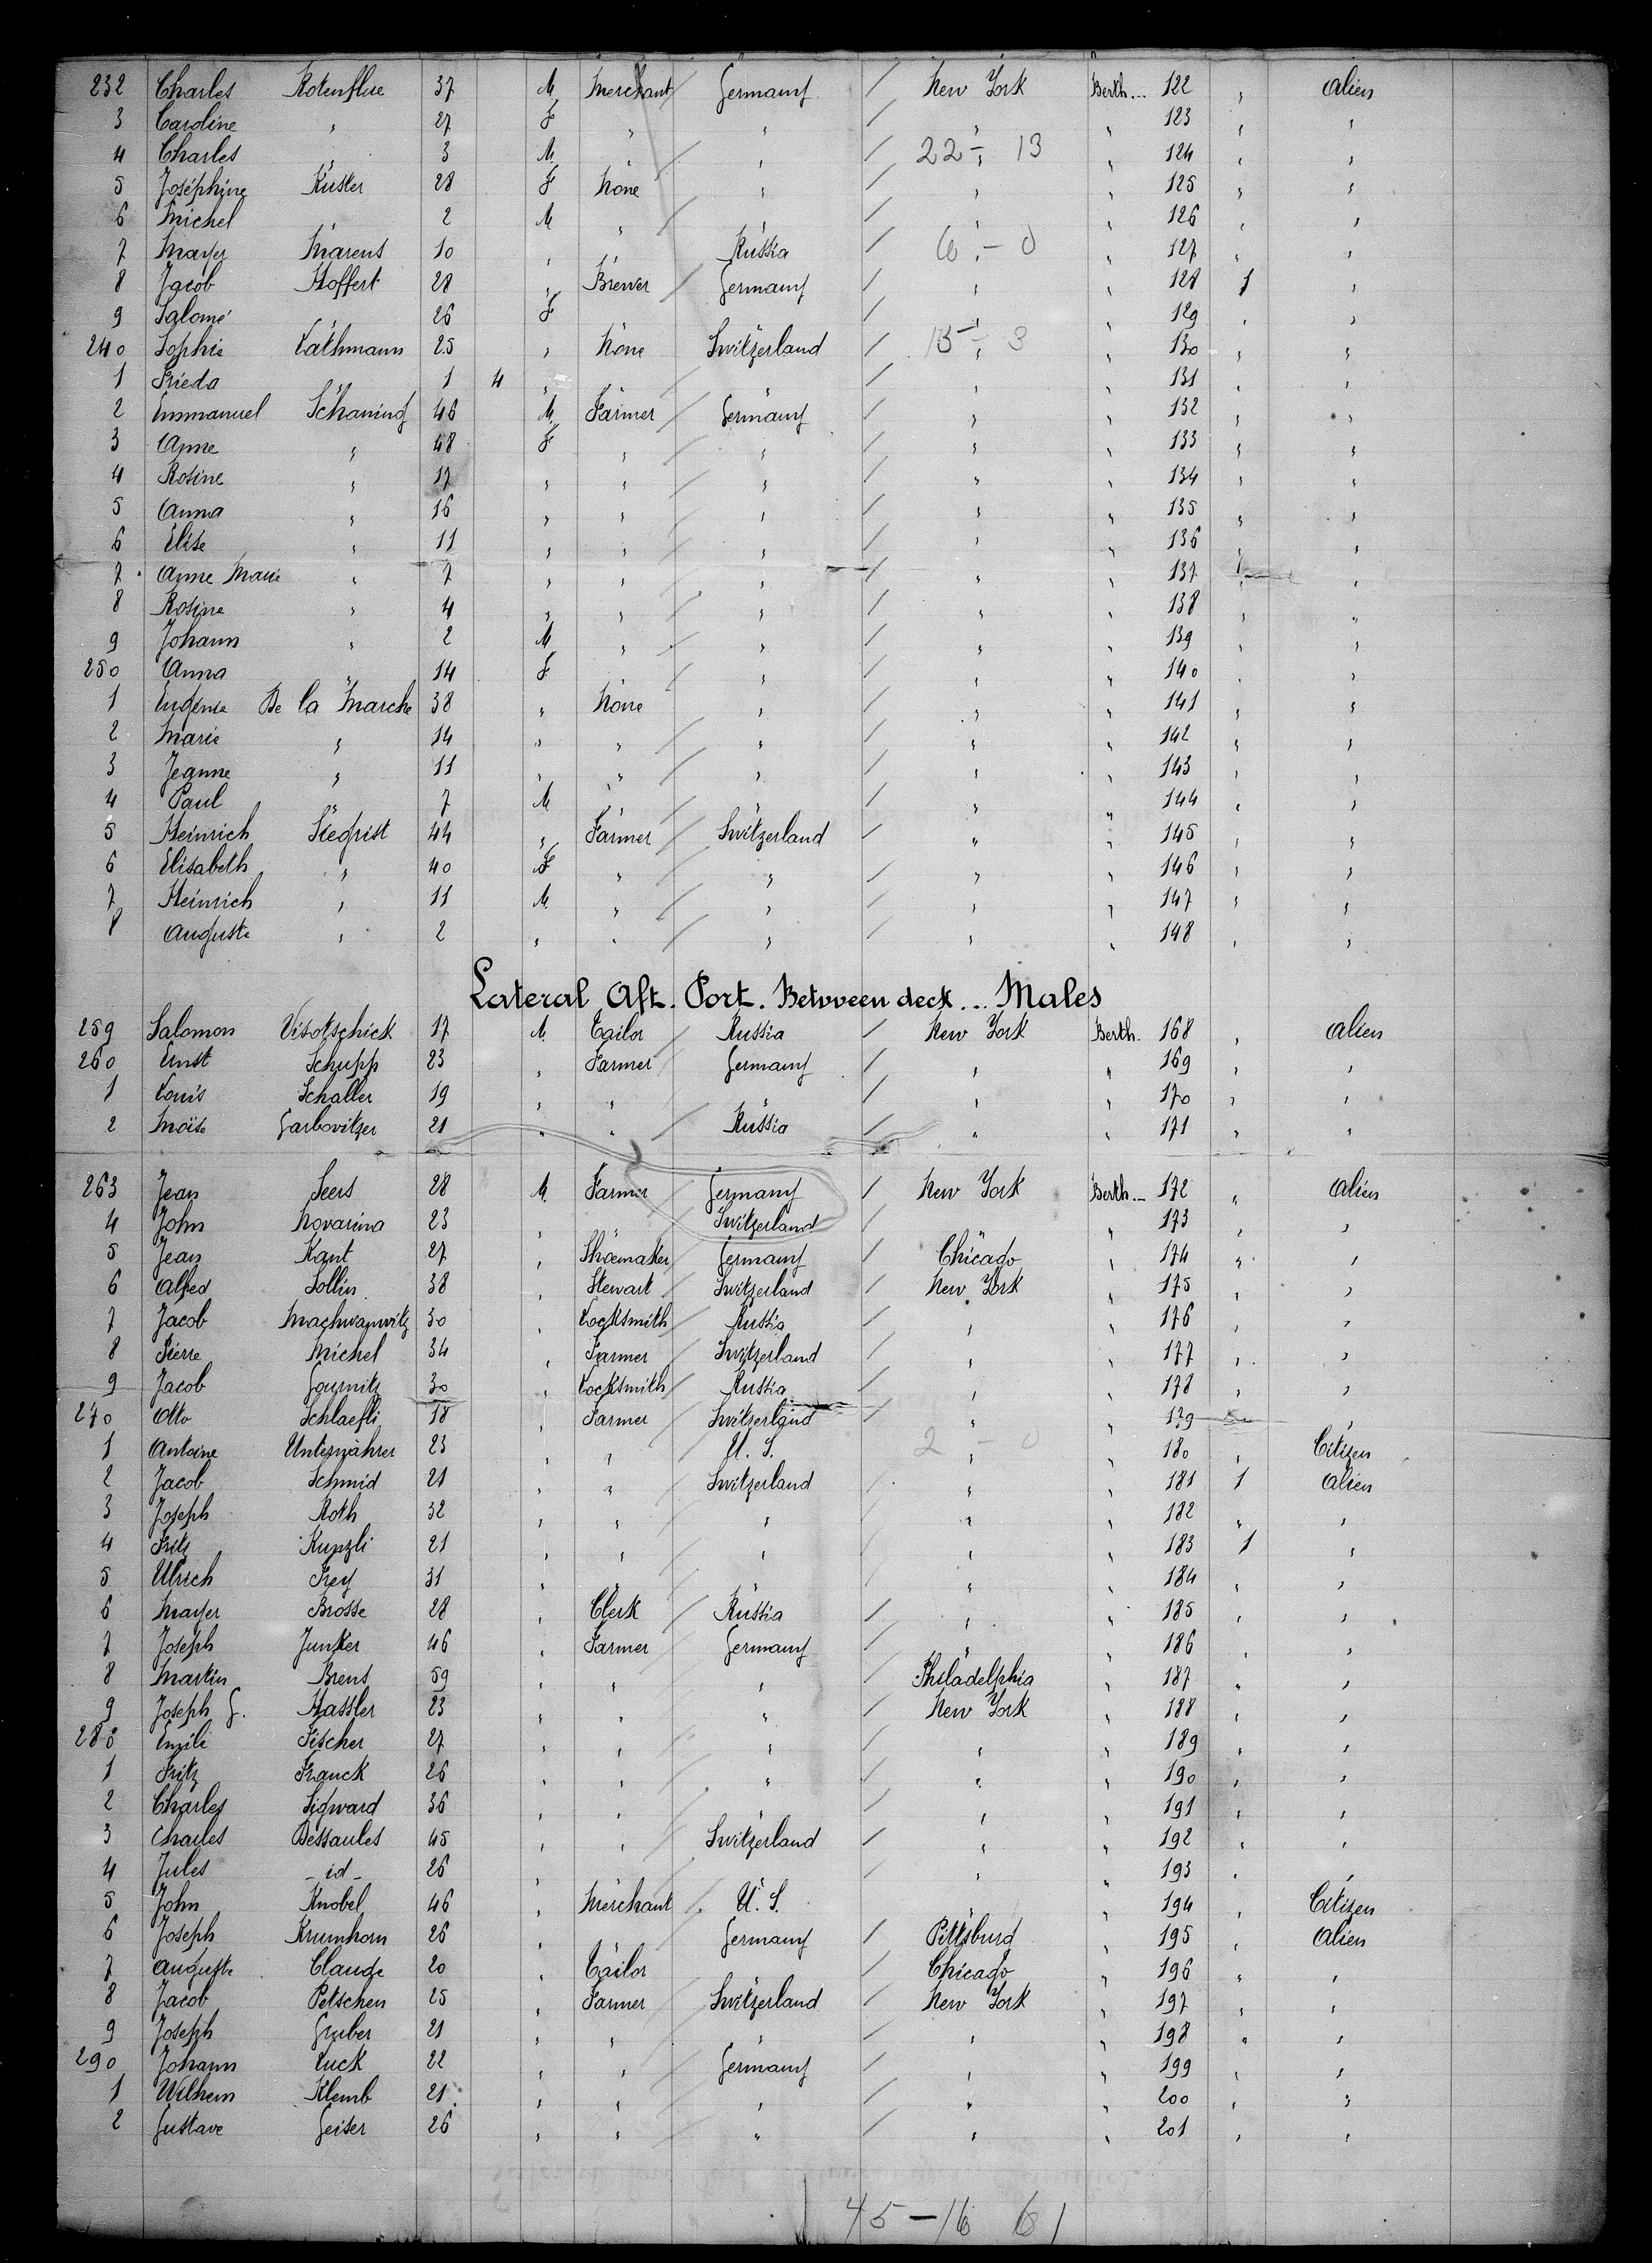 232 Charles Rotenflue 37 M Merchant Germany / New York Berth... 122 " Alien
3 Caroline " 27 F " " / " " 123 " "
4 Charles " 3 M " / " / 22 - 13 " 124 " "
5 Joséphine Kuster 28 F None " / " " 125 " "
6 Michel " 2 M " / " / " " 126 " "
7 Mayer Marens 10 " " / Russia / 6 - 0 " 127 " "
8 Jacob Hoffert 28 " Brewer / Germany / " " 128 1 "
9 Salomé " 26 F / " " 129 " "
240 Sophie Lathmann 25 " None / Switzerland / 15 - 3 " 130 " "
1 Frieda " 1 4 " / " " 131 " "
2 Emmanuel Schaning 46 M Farmer / Germany / " " 132 " "
3 Anne " 48 F " / " / " " 133 " "
4 Rosine " 17 " " / " / " " 134 " "
5 Anna " 16 " " / " / " " 135 " "
6 Elise " 11 " " / " / " " 136 " "
7 Anne Marie " 7 " " / " / " " 137 " "
8 Rosine " 4 " " / " / " " 138 " "
9 Johann " 2 M " / " / " " 139 " "
250 Anna " 14 F / " / " " 140 " "
1 Eugénie De la Marche 38 " None " / " " 141 " "
2 Marie " 14 " " / " / " " 142 " "
3 Jeanne " 11 " " / " / " " 143 " "
4 Paul " 7 M " / " / " " 144 " "
5 Heinrich Siegrist 44 " Farmer / Switzerland / " " 145 " "
6 Elisabeth " 40 F " / " / " " 146 " "
7 Heinrich " 11 M " / " / " " 147 " "
8 Auguste " 2 " " / " / " " 148 " "
Lateral Aft. Port. Between deck... Males
259 Salomon Visotschick 17 M Tailor / Russia / New York Berth. 168 " Alien
260 Ernst Schupp 23 " Farmer / Germany / " " 169 " "
1 Louis Schaller 19 " " / " " 170 " "
2 Moïse Garbovitzer 21 " " / Russia / " " 171 " "
263 Jean Seers 28 M Farmer Germany / New York Berth... 172 " Alien
4 John Novarina 23 " Switzerland / " 173 " "
5 Jean Kant 27 " Shoemaker Germany / Chicago " 174 " "
6 Alfred Sollin 38 " Stewart / Switzerland / New York " 175 " "
7 Jacob 30 " Locksmith / Russia / " " 176 " "
8 Pierre Michel 34 " Farmer / Switzerland / " " 177 " "
9 Jacob Gournitz 30 " Locksmith / Russia / " " 178 " "
270 Otto Schlaefli 18 " Farmer / Switzerland / " " 179 "
1 Antoine Unternährer 23 " " U. S. 2 - 0 " 180 " Citizen
2 Jacob Schmid 21 " " Switzerland / " " 181 1 Alien
3 Joseph Roth 32 " " / " / " " 182 " "
4 Fritz Kunzli 21 " " / " / " " 183 1 "
5 Ulrich Frey 31 " " / " " 184 " "
6 Mayer Brosse 28 " Clerk / Russia / " " 185 " "
7 Joseph Junker 46 " Farmer / Germany / " " 186 " "
8 Martin Brens 59 " " / " / Philadelphia " 187 " "
9 Joseph G. Hassler 23 " " / " / New York " 188 " "
280 Emile Fischer 27 " " / " / " " 189 " "
1 Fritz Franck 26 " " / " / " " 190 " "
2 Charles Sigward 36 " " / " " 191 " "
3 Charles Dessaules 45 " " Switzerland / " " 192 " "
4 Jules - id - 26 " / " " 193 " "
5 John Knobel 46 " Merchant U. S. " 194 " Citizen
6 Joseph Krumhorn 26 " Germany / Pittsburg " 195 " Alien
7 Auguste Claude 20 " Tailor / Chicago " 196 " "
8 Jacob Petschen 25 " Farmer / Switzerland / New York " 197 " "
9 Joseph Gruber 21 " " / " / " " 198 " "
290 Johann Luck 22 " " / Germany / " " 199 " "
1 Wilhem Klemb 21 " " / " / " " 200 " "
2 Gustave Geiser 26 " " / " / " " 201 " "
45 - 16 61